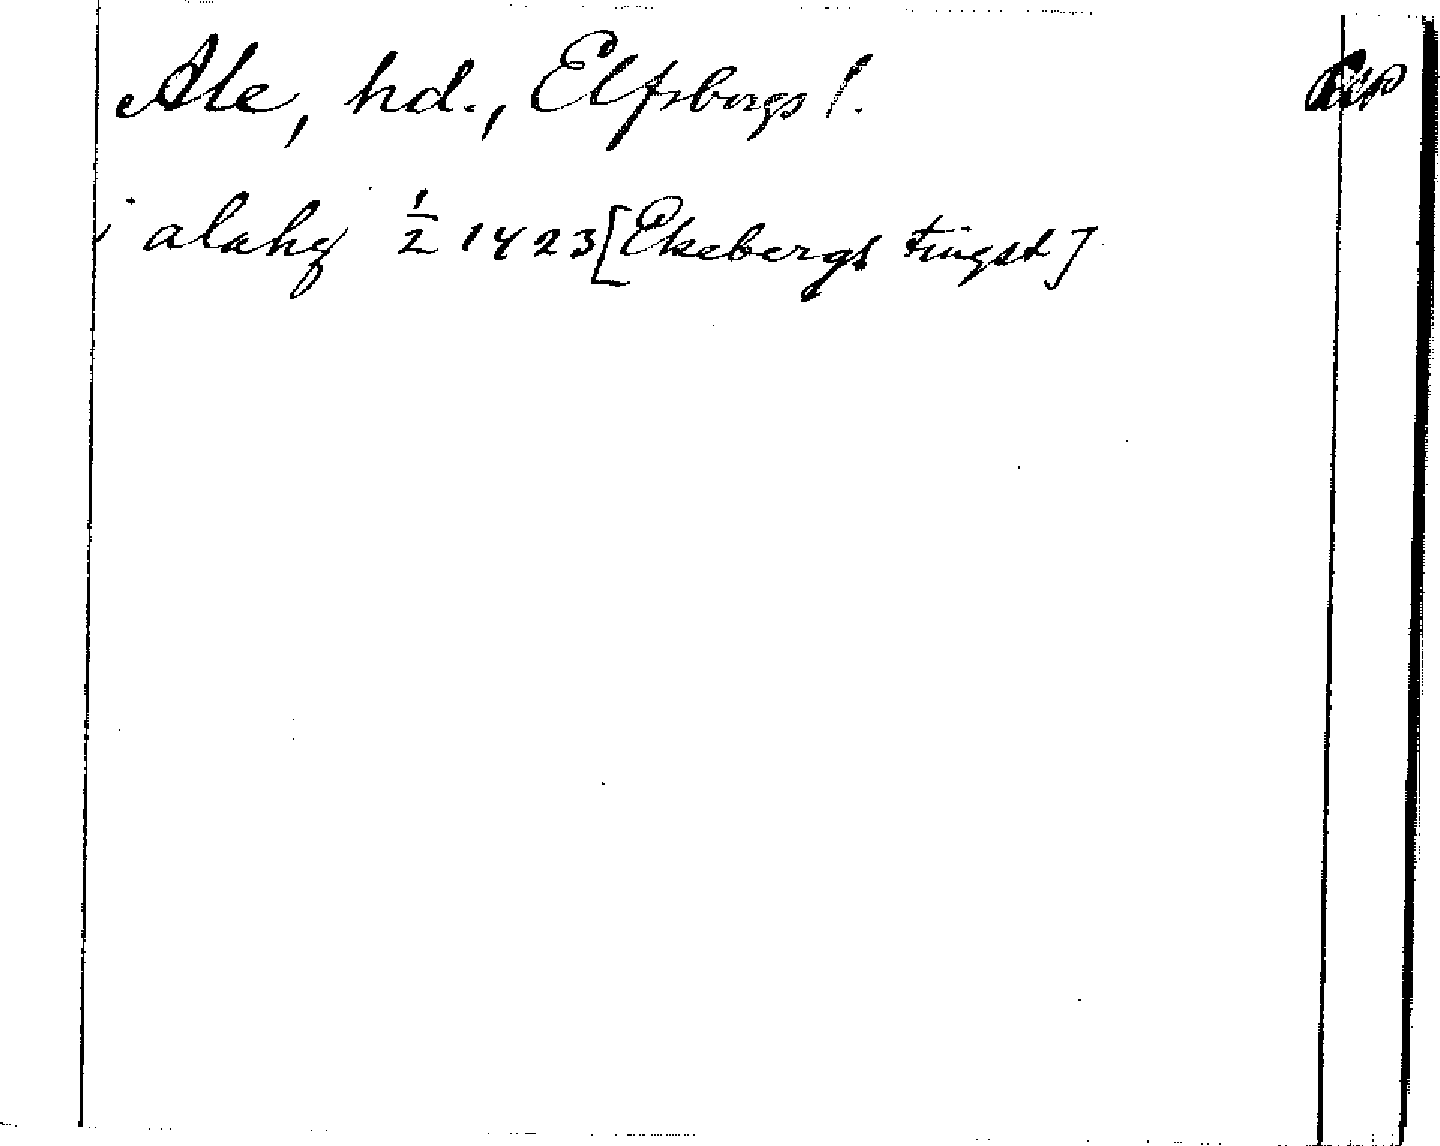 Ale, hd., Elfsborgs l.
i alahq 1/2 1423 [Ekebergs tingst]